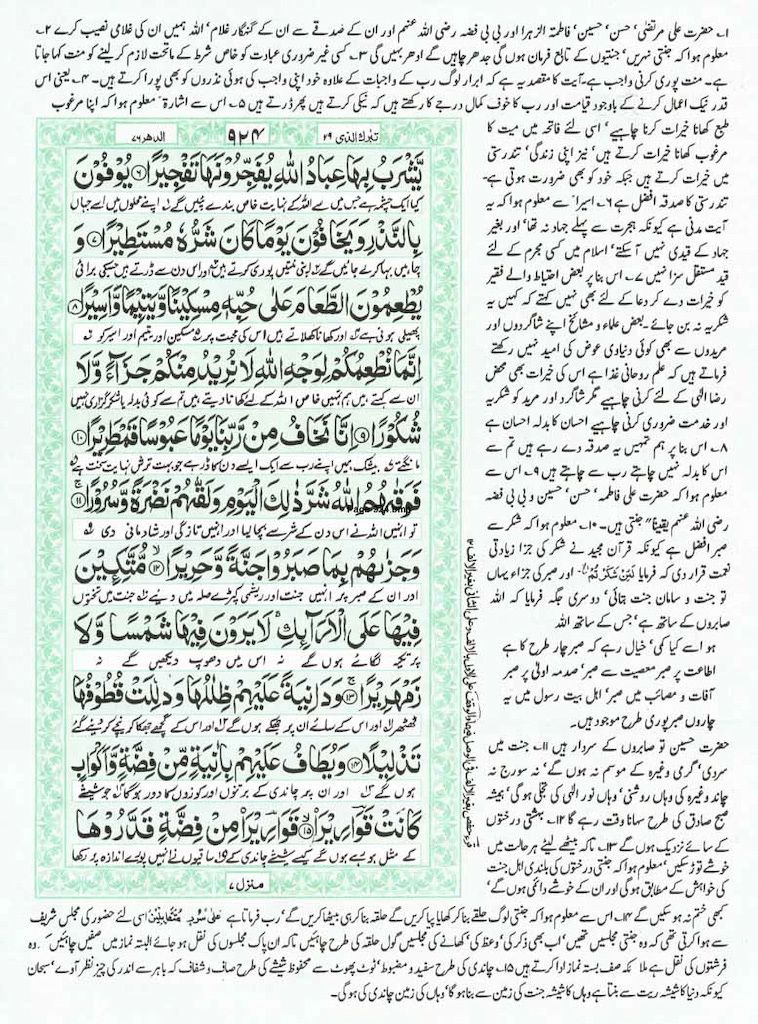 ۱۔ حضرت علی مرتضٰی‘ حسن‘ حسین‘ فاطمۃ الزہرا اور بی بی فضہ رضی اللہ عنہم اور ان کے صدقے سے ان کے گنہگار غلام‘ اللہ ہمیں ان کی غلامی نصیب کرے ۲۔
معلوم ہوا کہ جنتی نہریں‘ جنتیوں کے تابع فرمان ہوں گی جدھر چاہیں گے ادھر بہیں گی ۳۔ کسی غیر ضروری عبادت کو خاص شرط کے ماتحت لازم کر لینے کو منت کہا جاتا
ہے۔ منت پوری کرنی واجب ہے۔ آیت کا مقصد یہ ہے کہ ابرار لوگ رب کے واجبات کے علاوہ خود اپنی واجب کی ہوئی نذروں کو بھی پورا کرتے ہیں۔ ۴۔ یعنی اس
قدر نیک اعمال کرنے کے باوجود قیامت اور رب کا خوف کمال درجے کا رکھتے ہیں کہ نیکی کرتے ہیں پھر ڈرتے ہیں ۵۔ اس سے اشارۃً معلوم ہوا کہ اپنا مرغوب
طبع کھانا خیرات کرنا چاہیے‘ اسی لئے فاتحہ میں میت کا
مرغوب کھانا خیرات کرتے ہیں‘ نیز اپنی زندگی‘ تندرستی
میں خیرات کرتے ہیں جبکہ خود کو بھی ضرورت ہوتی ہے۔
تندرستی کا صدقہ افضل ہے ۶۔ اسیرا سے معلوم ہوا کہ یہ
آیت مدنی ہے کیونکہ ہجرت سے پہلے جہاد نہ تھا‘ اور بغیر
جہاد کے قیدی نہیں آ سکتے‘ اسلام میں کسی مجرم کے لئے
قید مستقل سزا نہیں ۷۔ اس بنا پر بعض احتیاط والے فقیر
کو خیرات دے کر دعا کے لئے بھی نہیں کہتے کہ کہیں یہ
شکریہ نہ بن جائے۔ بعض علماء و مشائخ اپنے شاگردوں اور
مریدوں سے بھی کوئی دنیاوی عوض کی امید نہیں رکھتے
فرماتے ہیں کہ علم روحانی غذا ہے اس کی خیرات بھی محض
رضا الٰہی کے لئے کرنی چاہیے مگر شاگرد اور مرید کو شکریہ
اور خدمت ضروری کرنی چاہیے احسان کا بدلہ احسان ہے
۸۔ اس بنا پر ہم تمہیں یہ صدقہ دے رہے ہیں تم سے
اس کا بدلہ نہیں چاہتے رب سے چاہتے ہیں ۹۔ اس سے
معلوم ہوا کہ حضرت علی فاطمہ‘ حسن‘ حسین و بی بی فضہ
رضی اللہ عنہم یقیناً جنتی ہیں۔ ۱۰۔ معلوم ہوا کہ شکر سے
صبر افضل ہے کیونکہ قرآن مجید نے شکر کی جزا زیادتی
نعمت قرار دی کہ فرمایا لَئِنْ شَكَرْتُمْ اور صبر کی جزاء یہاں
تو جنت و سامان جنت بتائی‘ دوسری جگہ فرمایا کہ اللہ
صابروں کے ساتھ ہے‘ جس کے ساتھ اللہ
ہو اسے کیا کمی‘ خیال رہے کہ صبر چار طرح کا ہے
اطاعت پر صبر معصیت سے صبر‘ صدمہ اولیٰ پر صبر
آفات و مصائب میں صبر‘ اہل بیت رسول میں یہ
چاروں صبر پوری طرح موجود ہیں۔
حضرت حسین تو صابروں کے سردار ہیں ۱۱۔ جنت میں
سردی‘ گرمی وغیرہ کے موسم نہ ہوں گے‘ نہ سورج نہ
چاند وغیرہ کی وہاں روشنی‘ وہاں نور الٰہی کی تجلی ہو گی‘ ہمیشہ
صبح صادق کی طرح سہانا وقت رہے گا ۱۲۔ بہشتی درختوں
کے سائے نزدیک ہوں گے ۱۳۔ تاکہ بیٹھے لیٹے ہر حالت میں
خوشے توڑ سکیں‘ معلوم ہوا کہ جنتی درختوں کی بلندی اہل جنت
کی خواہش کے مطابق ہو گی اور ان کے خوشے دائمی ہوں گے‘
تبٰرک الذی ۲۹
۹۲۴
الدھر ۷۶
يَّشْرَبُ بِهَا عِبَادُ اللّٰهِ يُفَجِّرُوْنَهَا تَفْجِيْرًا ۶ يُوْفُوْنَ
کیا ایک چشمہ ہے جس میں سے اللہ کے نہایت خاص بندے پئیں گے اپنے محلوں میں اسے جہاں
بِالنَّذْرِ وَيَخَافُوْنَ يَوْمًا كَانَ شَرُّهٗ مُسْتَطِيْرًا ۷ وَ
چاہیں بہا کر لے جائیں گے اپنی منتیں پوری کرتے ہیں اور اس دن سے ڈرتے ہیں جس کی برائی
يُطْعِمُوْنَ الطَّعَامَ عَلٰى حُبِّهٖ مِسْكِيْنًا وَّيَتِيْمًا وَّاَسِيْرًا ۸
پھیلی ہوئی ہے اور کھانا کھلاتے ہیں اس کی محبت پر مسکین اور یتیم اور اسیر کو
اِنَّمَا نُطْعِمُكُمْ لِوَجْهِ اللّٰهِ لَا نُرِيْدُ مِنْكُمْ جَزَآءً وَّلَا
ان سے کہتے ہیں ہم تمہیں خاص اللہ کے لئے کھانا دیتے ہیں تم سے کوئی بدلہ یا شکر گزاری نہیں
شُكُوْرًا ۹ اِنَّا نَخَافُ مِنْ رَّبِّنَا يَوْمًا عَبُوْسًا قَمْطَرِيْرًا ۱۰
مانگتے بیشک ہمیں اپنے رب سے ایک ایسے دن کا ڈر ہے جو بہت ترش نہایت سخت ہے
فَوَقٰىهُمُ اللّٰهُ شَرَّ ذٰلِكَ الْيَوْمِ وَلَقّٰىهُمْ نَضْرَةً وَّسُرُوْرًا ۱۱
تو انہیں اللہ نے اس دن کے شر سے بچا لیا اور انہیں تازگی اور شادمانی دی
وَجَزٰىهُمْ بِمَا صَبَرُوْا جَنَّةً وَّحَرِيْرًا ۱۲ مُّتَّكِـِٕيْنَ
اور ان کے صبر پر انہیں جنت اور ریشمی کپڑے صلہ میں دیے جنت میں تختوں
فِيْهَا عَلَى الْاَرَآئِكِ لَا يَرَوْنَ فِيْهَا شَمْسًا وَّلَا
پر تکیہ لگائے ہوں گے نہ اس میں دھوپ دیکھیں گے نہ
زَمْهَرِيْرًا ۱۳ وَدَانِيَةً عَلَيْهِمْ ظِلٰلُهَا وَذُلِّلَتْ قُطُوْفُهَا
ٹھٹھر اور اس کے سائے ان پر جھکے ہوں گے اور اس کے گچھے جھکا کر نیچے کر دیئے گئے
تَذْلِيْلًا ۱۴ وَيُطَافُ عَلَيْهِمْ بِاٰنِيَةٍ مِّنْ فِضَّةٍ وَّاَكْوَابٍ
ہوں گے اور ان پر چاندی کے برتنوں اور کوزوں کا دور ہو گا جو شیشے
كَانَتْ قَوَارِيْرَا ۱۵ قَوَارِيْرَا مِنْ فِضَّةٍ قَدَّرُوْهَا
کے مثل ہو رہے ہوں گے کیسے شیشے چاندی کے ساقیوں نے انہیں پورے اندازہ پر رکھا
منزل ۷
Page-924.bmp
کبھی ختم نہ ہو سکیں گے ۱۴۔ اس سے معلوم ہوا کہ جنتی لوگ حلقے بنا کر کھایا پیا کریں گے حلقہ بنا کر ہی بیٹھا کریں گے‘ رب فرماتا ہے عَلٰی سُرُرٍ مُّتَقٰبِلِیْنَ اسی لئے حضور کی مجلس شریف
سے ہوا کرتی تھی کہ وہ جنتی مجلسیں تھیں‘ اب بھی ذکر کی‘ وعظ کی‘ کھانے کی مجلسیں گول حلقہ کی طرح چاہئیں تاکہ ان پاک مجلسوں کی نقل ہو جائے البتہ نماز میں صفیں چاہئیں‘ کہ وہ
فرشتوں کی نقل ہے ملائکہ صف بستہ نماز ادا کرتے ہیں ۱۵۔ چاندی کی طرح سفید و مضبوط‘ ٹوٹ پھوٹ سے محفوظ شیشے کی طرح صاف و شفاف کہ باہر سے اندر کی چیز نظر آوے‘ سبحان
کیونکہ دنیا کا شیشہ ریت سے بنتا ہے وہاں کا شیشہ جنت کی زمین سے بنا ہو گا‘ وہاں کی زمین چاندی کی ہو گی۔